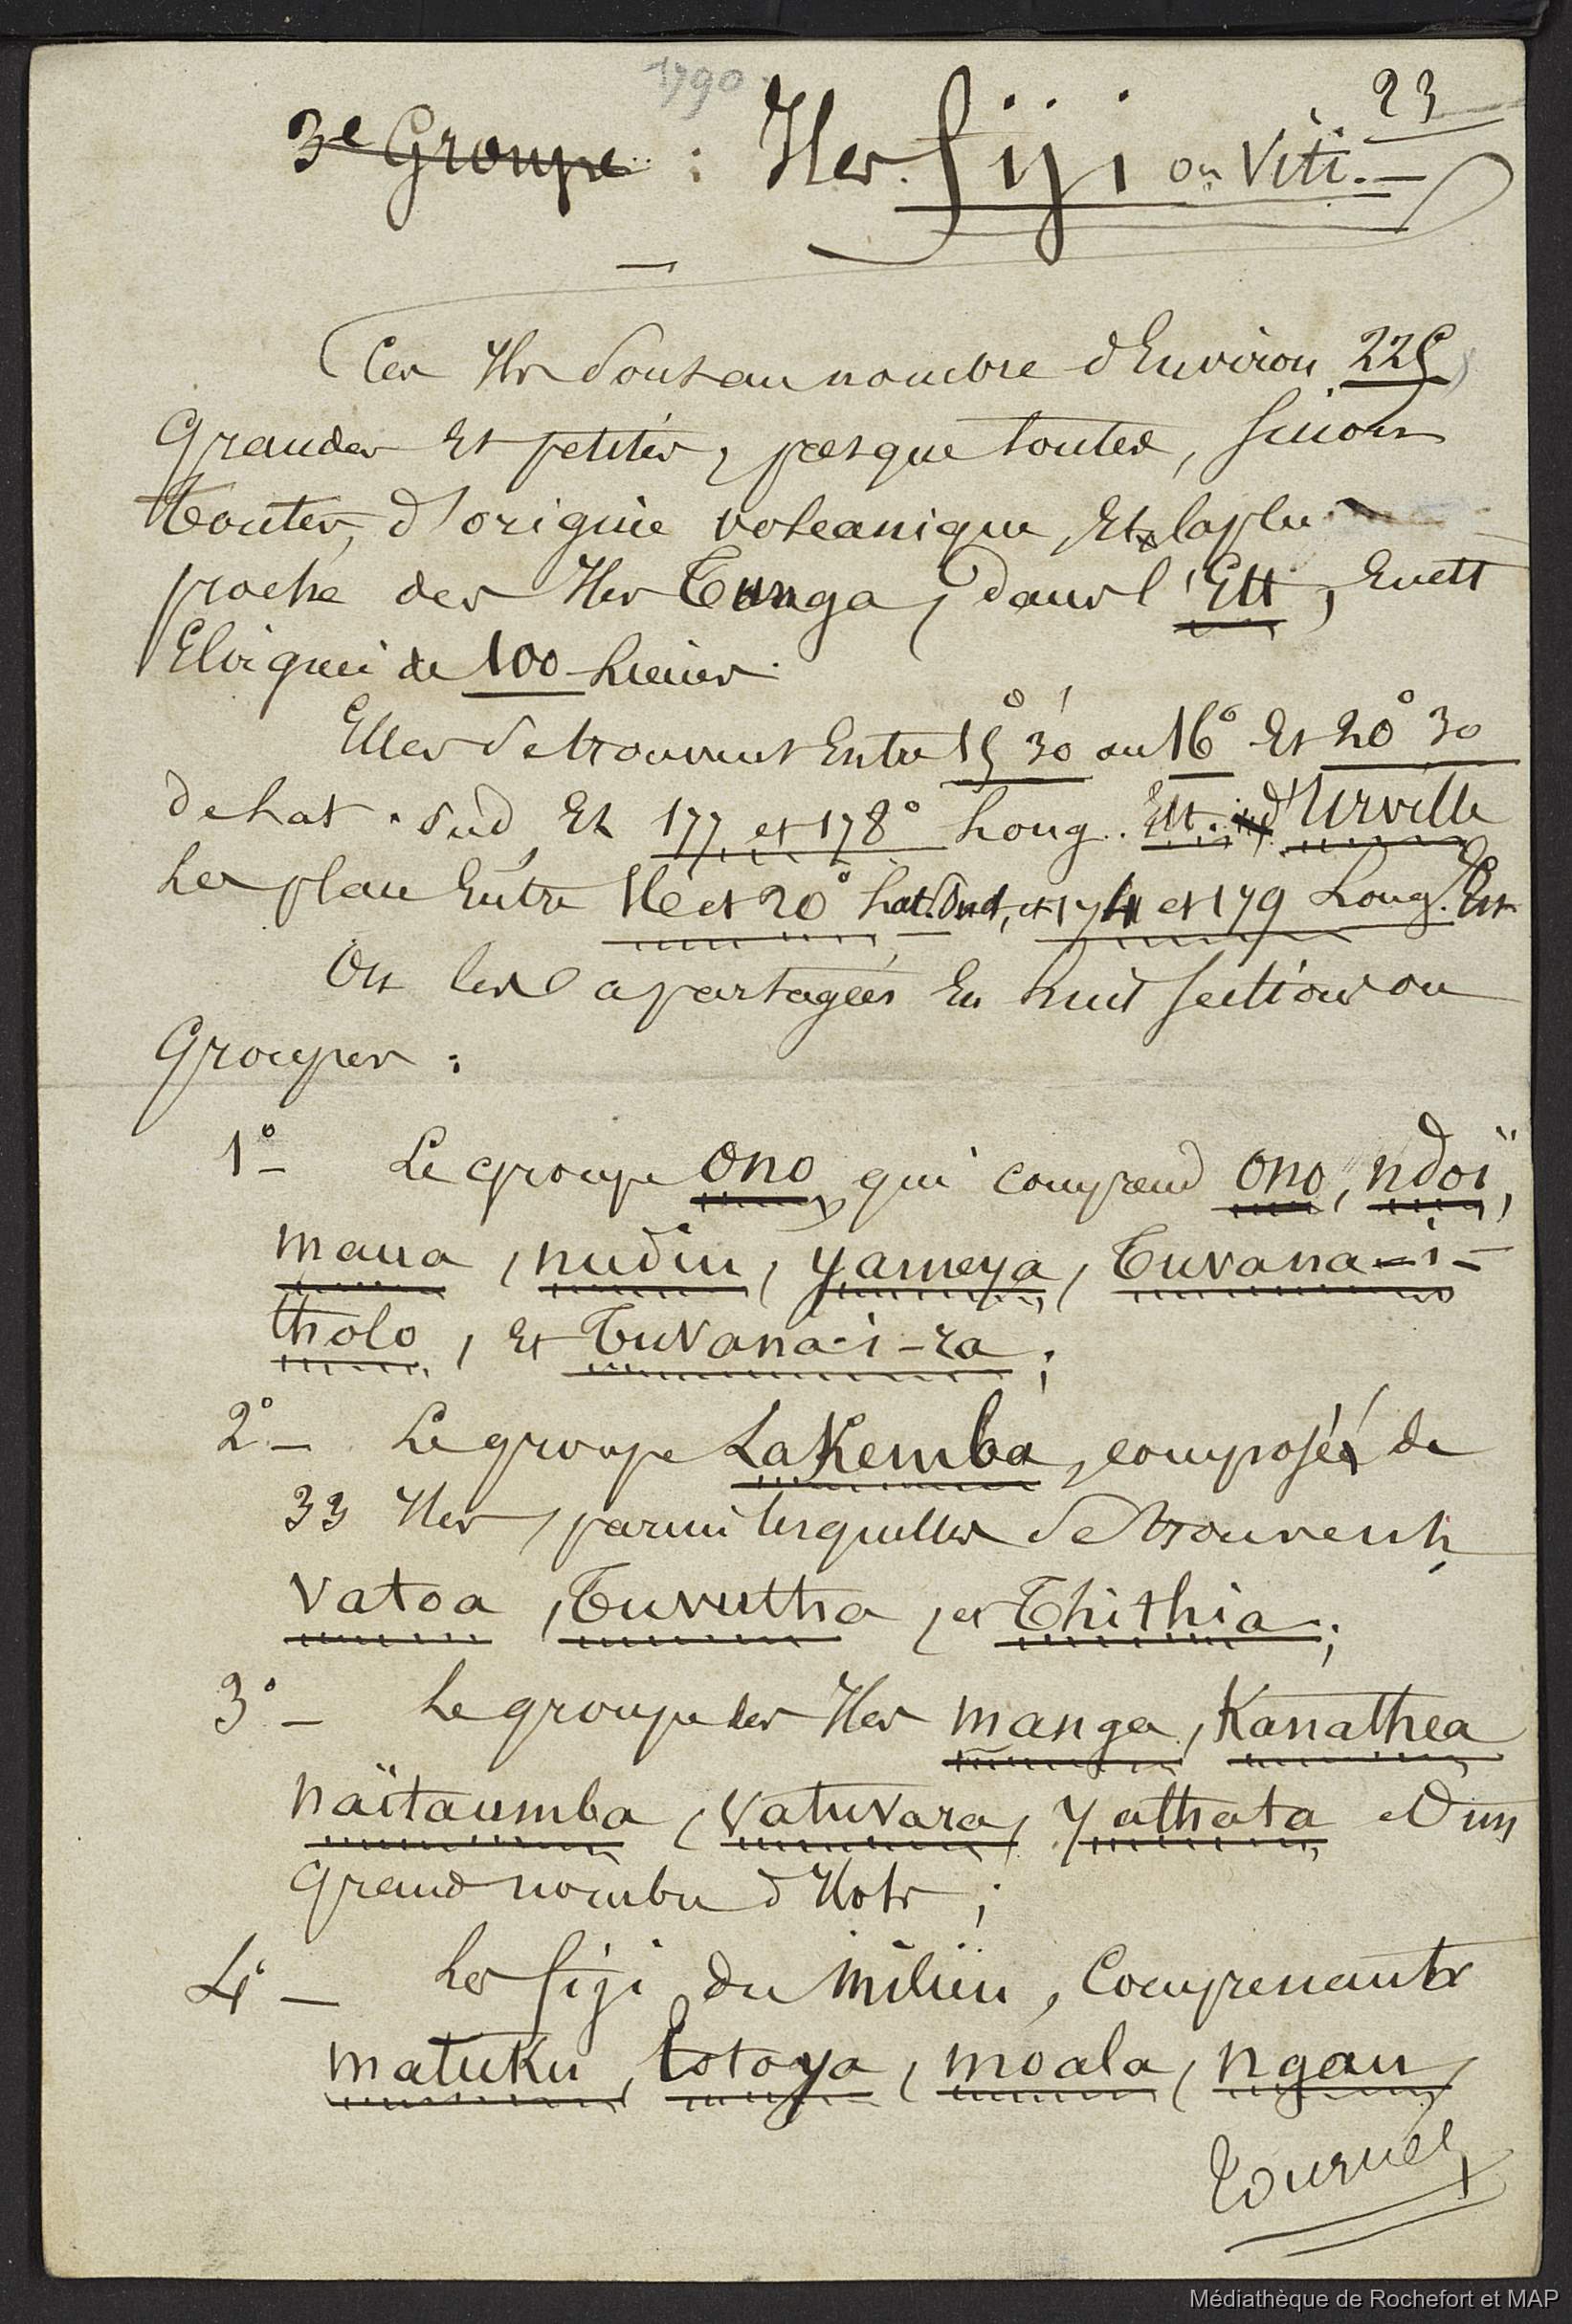 1790
23
3e Groupe : Iles Fiji ou Viti. —
Ces Iles sont au nombre d'Environ 225,
Grandes Et petites, presque toutes, sinon
toutes, d'origine volcanique, Et la plus
proche des Iles Tunga, dans l'Est, En est
Eloignée de 100 lieues.
Elles se trouvent Entre 15° 30' ou 16° Et 20° 30
de Lat. sud, Et 177 et 178° Long. Est. d'Urville
Les place Entre 16 et 20° Lat. Sud, et 174 et 179 Long. Est
On les a partagées En huit sections ou
Groupes :
1° — Le groupe Ono, qui comprend Ono, ndoï,
mana, nudin, yameya, Tuvana-i-
tholo, Et Tuvana-i-ra ;
2° — Le groupe LaKemba, composé de
33 Iles, parmi lesquelles se trouvent
Vatoa, Tuvutha, et Thithia ;
3° — Le groupe des Iles manga, Kanathea
naïtaumba, Vatuvara, Yathata et d'un
Grand nombre d'Ilots ;
4° — Les fiji du milieu, Comprenant
matuku, totoya, moala, ngau,
Tournez
Médiathèque de Rochefort et MAP